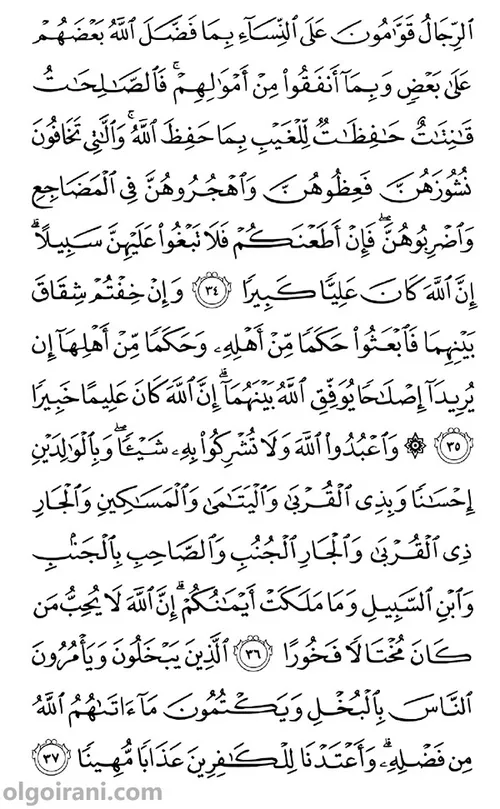 ٱلرِّجَالُ قَوَّٰمُونَ عَلَى ٱلنِّسَآءِ بِمَا فَضَّلَ ٱللَّهُ بَعۡضَهُمۡ
عَلَىٰ بَعۡضٖ وَبِمَآ أَنفَقُواْ مِنۡ أَمۡوَٰلِهِمۡۚ فَٱلصَّٰلِحَٰتُ
قَٰنِتَٰتٌ حَٰفِظَٰتٞ لِّلۡغَيۡبِ بِمَا حَفِظَ ٱللَّهُۚ وَٱلَّٰتِي تَخَافُونَ
نُشُوزَهُنَّ فَعِظُوهُنَّ وَٱهۡجُرُوهُنَّ فِي ٱلۡمَضَاجِعِ
وَٱضۡرِبُوهُنَّۖ فَإِنۡ أَطَعۡنَكُمۡ فَلَا تَبۡغُواْ عَلَيۡهِنَّ سَبِيلًاۗ
إِنَّ ٱللَّهَ كَانَ عَلِيّٗا كَبِيرٗا ٣٤ وَإِنۡ خِفۡتُمۡ شِقَاقَ
بَيۡنِهِمَا فَٱبۡعَثُواْ حَكَمٗا مِّنۡ أَهۡلِهِۦ وَحَكَمٗا مِّنۡ أَهۡلِهَآ إِن
يُرِيدَآ إِصۡلَٰحٗا يُوَفِّقِ ٱللَّهُ بَيۡنَهُمَآۗ إِنَّ ٱللَّهَ كَانَ عَلِيمًا خَبِيرٗا
٣٥ ۞ وَٱعۡبُدُواْ ٱللَّهَ وَلَا تُشۡرِكُواْ بِهِۦ شَيۡـٔٗاۖ وَبِٱلۡوَٰلِدَيۡنِ
إِحۡسَٰنٗا وَبِذِي ٱلۡقُرۡبَىٰ وَٱلۡيَتَٰمَىٰ وَٱلۡمَسَٰكِينِ وَٱلۡجَارِ
ذِي ٱلۡقُرۡبَىٰ وَٱلۡجَارِ ٱلۡجُنُبِ وَٱلصَّاحِبِ بِٱلۡجَنۢبِ
وَٱبۡنِ ٱلسَّبِيلِ وَمَا مَلَكَتۡ أَيۡمَٰنُكُمۡۗ إِنَّ ٱللَّهَ لَا يُحِبُّ مَن
كَانَ مُخۡتَالٗا فَخُورًا ٣٦ ٱلَّذِينَ يَبۡخَلُونَ وَيَأۡمُرُونَ
ٱلنَّاسَ بِٱلۡبُخۡلِ وَيَكۡتُمُونَ مَآ ءَاتَىٰهُمُ ٱللَّهُ
مِن فَضۡلِهِۦۗ وَأَعۡتَدۡنَا لِلۡكَٰفِرِينَ عَذَابٗا مُّهِينٗا ٣٧
olgoirani.com